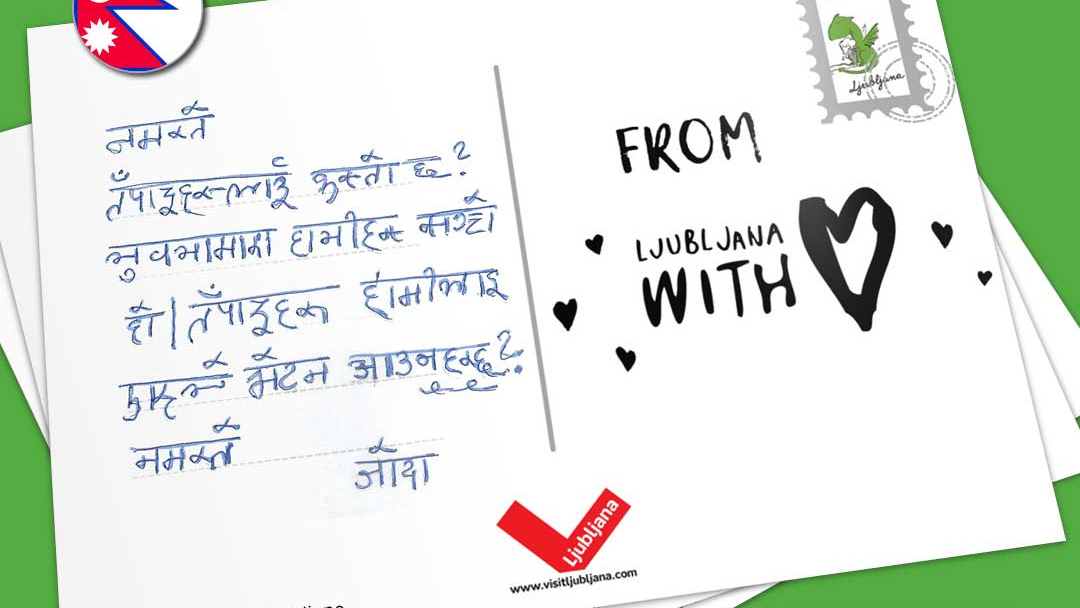 नमस्ते
तँपाइहरूलाई कस्तो छ?
हामीहरू
हो। तँपाइहरू हामीलाइ
भेटन आउनुहुन्छ?
नमस्ते
FROM
LJUBLJANA
WITH
Ljubljana
Ljubljana
www.visitljubljana.com